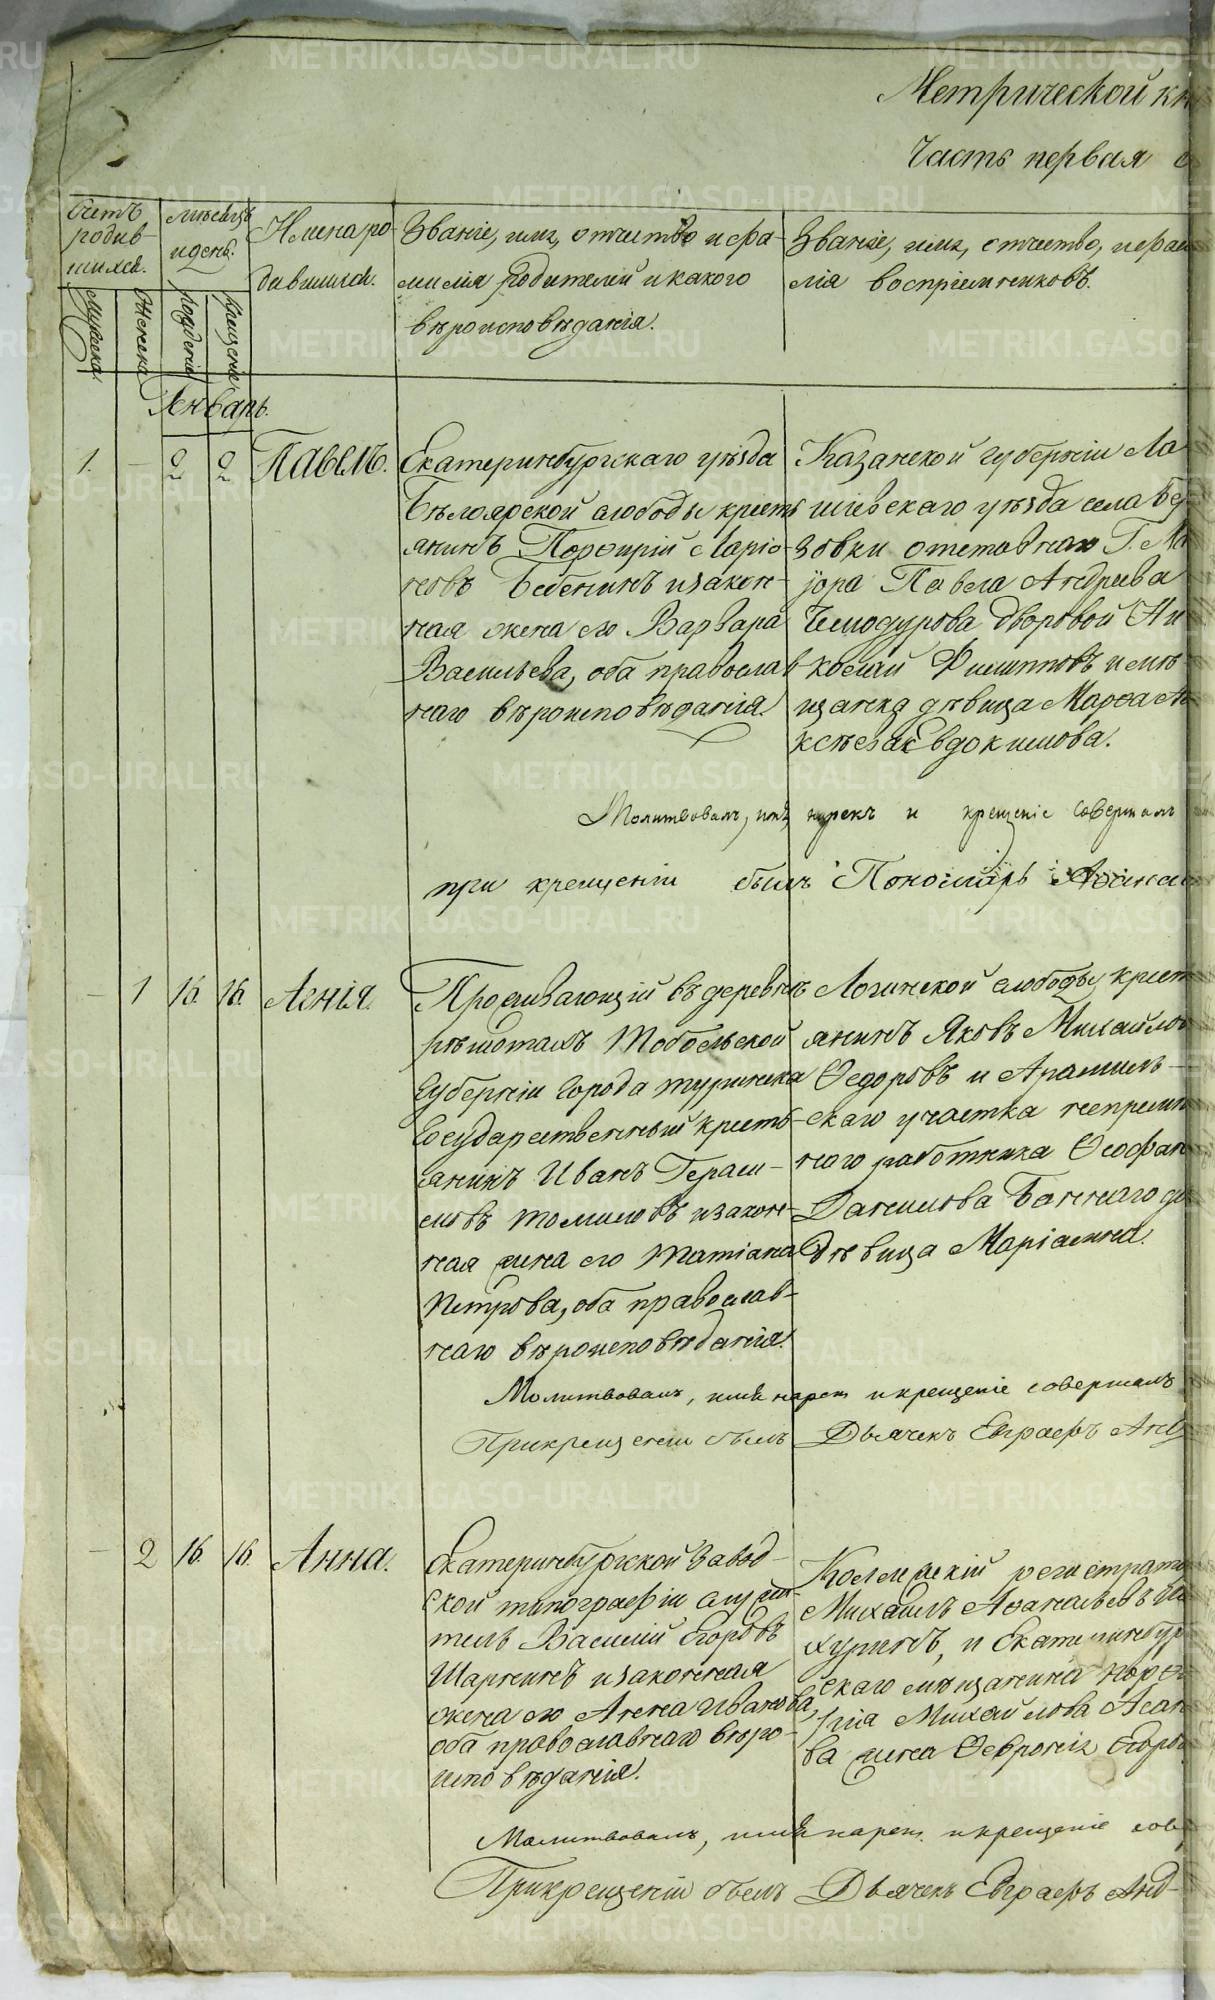 METRIKI.GASO-URAL.RU
Метрической кн
Часть первая о
Счетъ родив-шихся.
Мужеска.
Женска
Мѣсяцъ и день.
Рожденія
Крещенія
Имена ро-
дившихся.
Званіе, имя, отчество и фа-
милія родителей и какого
вѣроисповѣданія.
Званіе, имя, отчество, и фами
лія воспріемниковъ.
Январь.
1. — 2 2 Павелъ.
Екатеринбургскаго уѣзда
Бѣлоярской слободы кресть
янинъ Порфирій Ларіо-
новъ Бебенинъ и закон-
ная жена его Варвара
Васильева, оба православ
наго вѣроисповѣданія.
Казанской губерніи Ла
ишевскаго уѣзда села
зовки отставнаго Г. Ма
іора Павла Андреева
Чемодурова дворовой Ни
колай Филипповъ и мѣ
щанка дѣвица Марѳа Але
ксѣева Евдокимова.
Молитвовалъ, имя нарекъ и крещеніе совершалъ
при крещеніи былъ Пономарь Аѳанас
— 1 16. 16. Агнія.
Проживающій въ деревнѣ
рѣшотахъ Тобольской
Губерніи города туринска
Государственный кресть-
янинъ Иванъ Гераси-
мовъ томиловъ и закон-
ная жена его татіана
Петрова, оба православ-
наго вѣроисповѣданія.
Логиновской слободы крест
янинъ Яковъ Михайлов
Ѳедоровъ и Арамиль-
скаго участка непремѣн
наго работника Ѳеофан
Данилова Баннаго до
дѣвица Маріамна.
Молитвовалъ, имя нарек и крещеніе совершалъ
При крещеніи былъ Дьячекъ Евграфъ Анд
— 2 16. 16. Анна.
Екатеринбургской завод-
ской типографіи служи-
тель Василій Егоровъ
Шарнинъ и законная
жена его Анна Иванова,
оба православнаго вѣро-
исповѣданія.
Коллежскій регистрато
Михаилъ Аѳанасьевъ
хуринъ, и Екатеринбур
скаго мѣщанина порфи
рія Михайлова Асан
ва жена Ѳевронія Егоро
Молитвовалъ, имя нарек. и крещеніе сов
При крещеніи былъ Дьячекъ Евграфъ Анд-